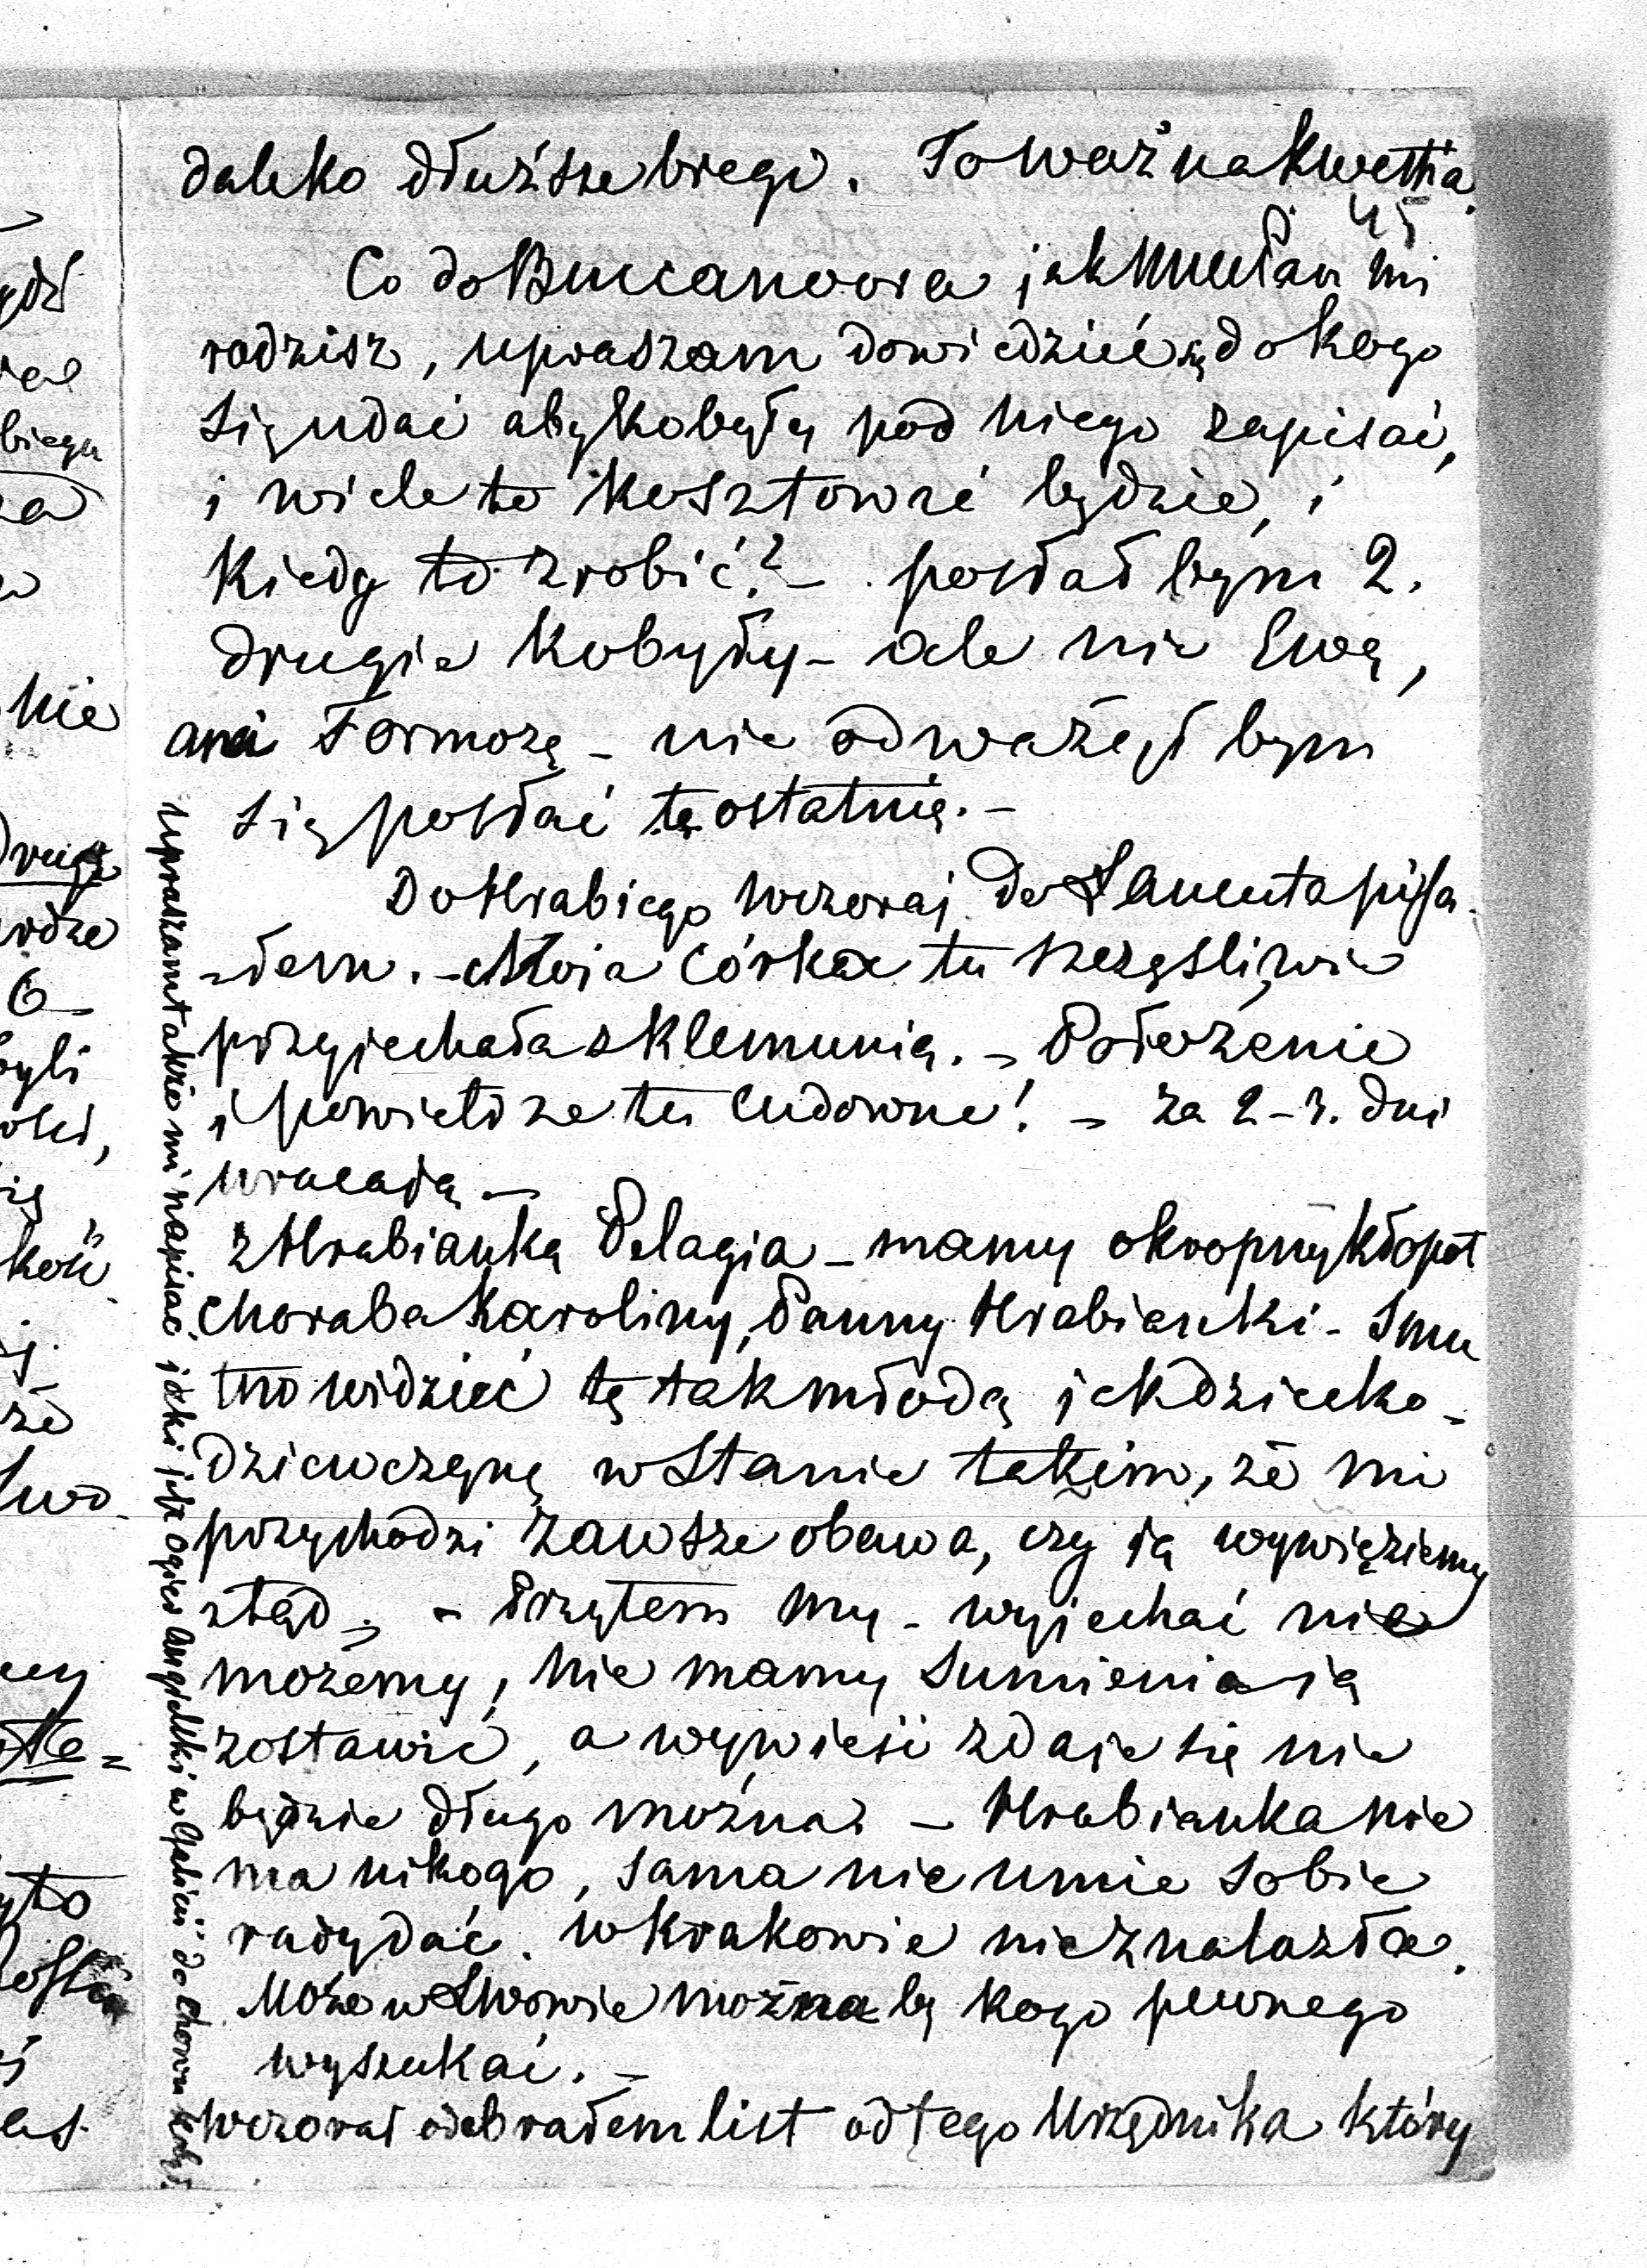 daleko dłuższe biegi. To ważna kwestia.
45
Co do Buccaneera jak mi
radzisz, upraszam dowiedzieć się do kogo
się udać aby kobyłę pod niego zapisać,
i wiele to kosztować będzie, i
kiedy to zrobić? – posłał bym 2.
drugie kobyły – ale nie Ewę,
ani Formozę – nie odważył bym
się posłać tę ostatnią. –
Do Hrabiego wczoraj do pisa
-łem. – Moja córka tu szczęśliwie
przyjechała z Klemunią. – Położenie
i powietrze tu cudowne! – za 2–3. dni
wracają –
z Hrabianką Pelagią – mamy okropny kłopot
choroba Karoliny, Panny Hrabianki – Smu
tno widzieć tę tak młodą jak dziecko –
dziewczynę w stanie takim, że mi
przychodzi zawsze obawa, czy ją wywięziemy
ztąd – – Przytem my – wyjechać nie
możemy, nie mamy sumienia ją
zostawić, a wywieść zdaje się nie
będzie długo można – Hrabianka nie
ma nikogo, sama nie umie sobie
rady dać. w Krakowie nie znalazła.
Może w Lwowie można by kogo pewnego
wyszukać. –
Wczoraj odebrałem list od tego Urzędnika który
upraszam także mi napisać jaki jest ogier angielski w Galicii do chowu